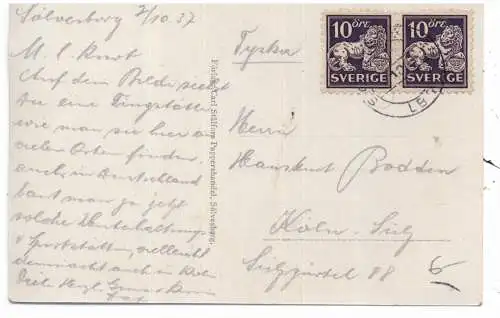 Sölvesborg 7/10.37
M. l. Kurt
Auf dem Bilde siehst
du eine Tingstätte
wie man sie hier an
vielen Orten findet.
auch in Deutschland
baut man ja jetzt
solche Unterhaltungs
& Sportstätten, vielleicht
demnächst auch in Köln
Viele Herzl.
Förlag: Carl Stålfors Pappershandel, Sölvesborg.
Tyskland
10 ÖRE SVERIGE
10 ÖRE SVERIGE
Herrn
Hanskurt Bodden
Köln-Sülz
Sülzgürtel 88
6